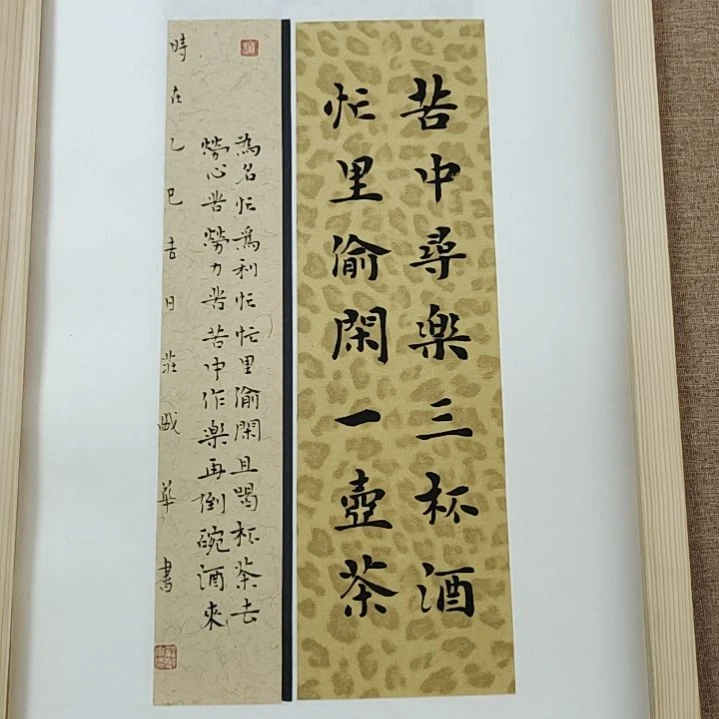 苦中尋楽三杯酒
忙里偷閑一壺茶
為名忙為利忙忙里偷閑且喝杯茶去
勞心苦勞力苦苦中作樂再倒碗酒來
時在乙巳吉日莊 華書